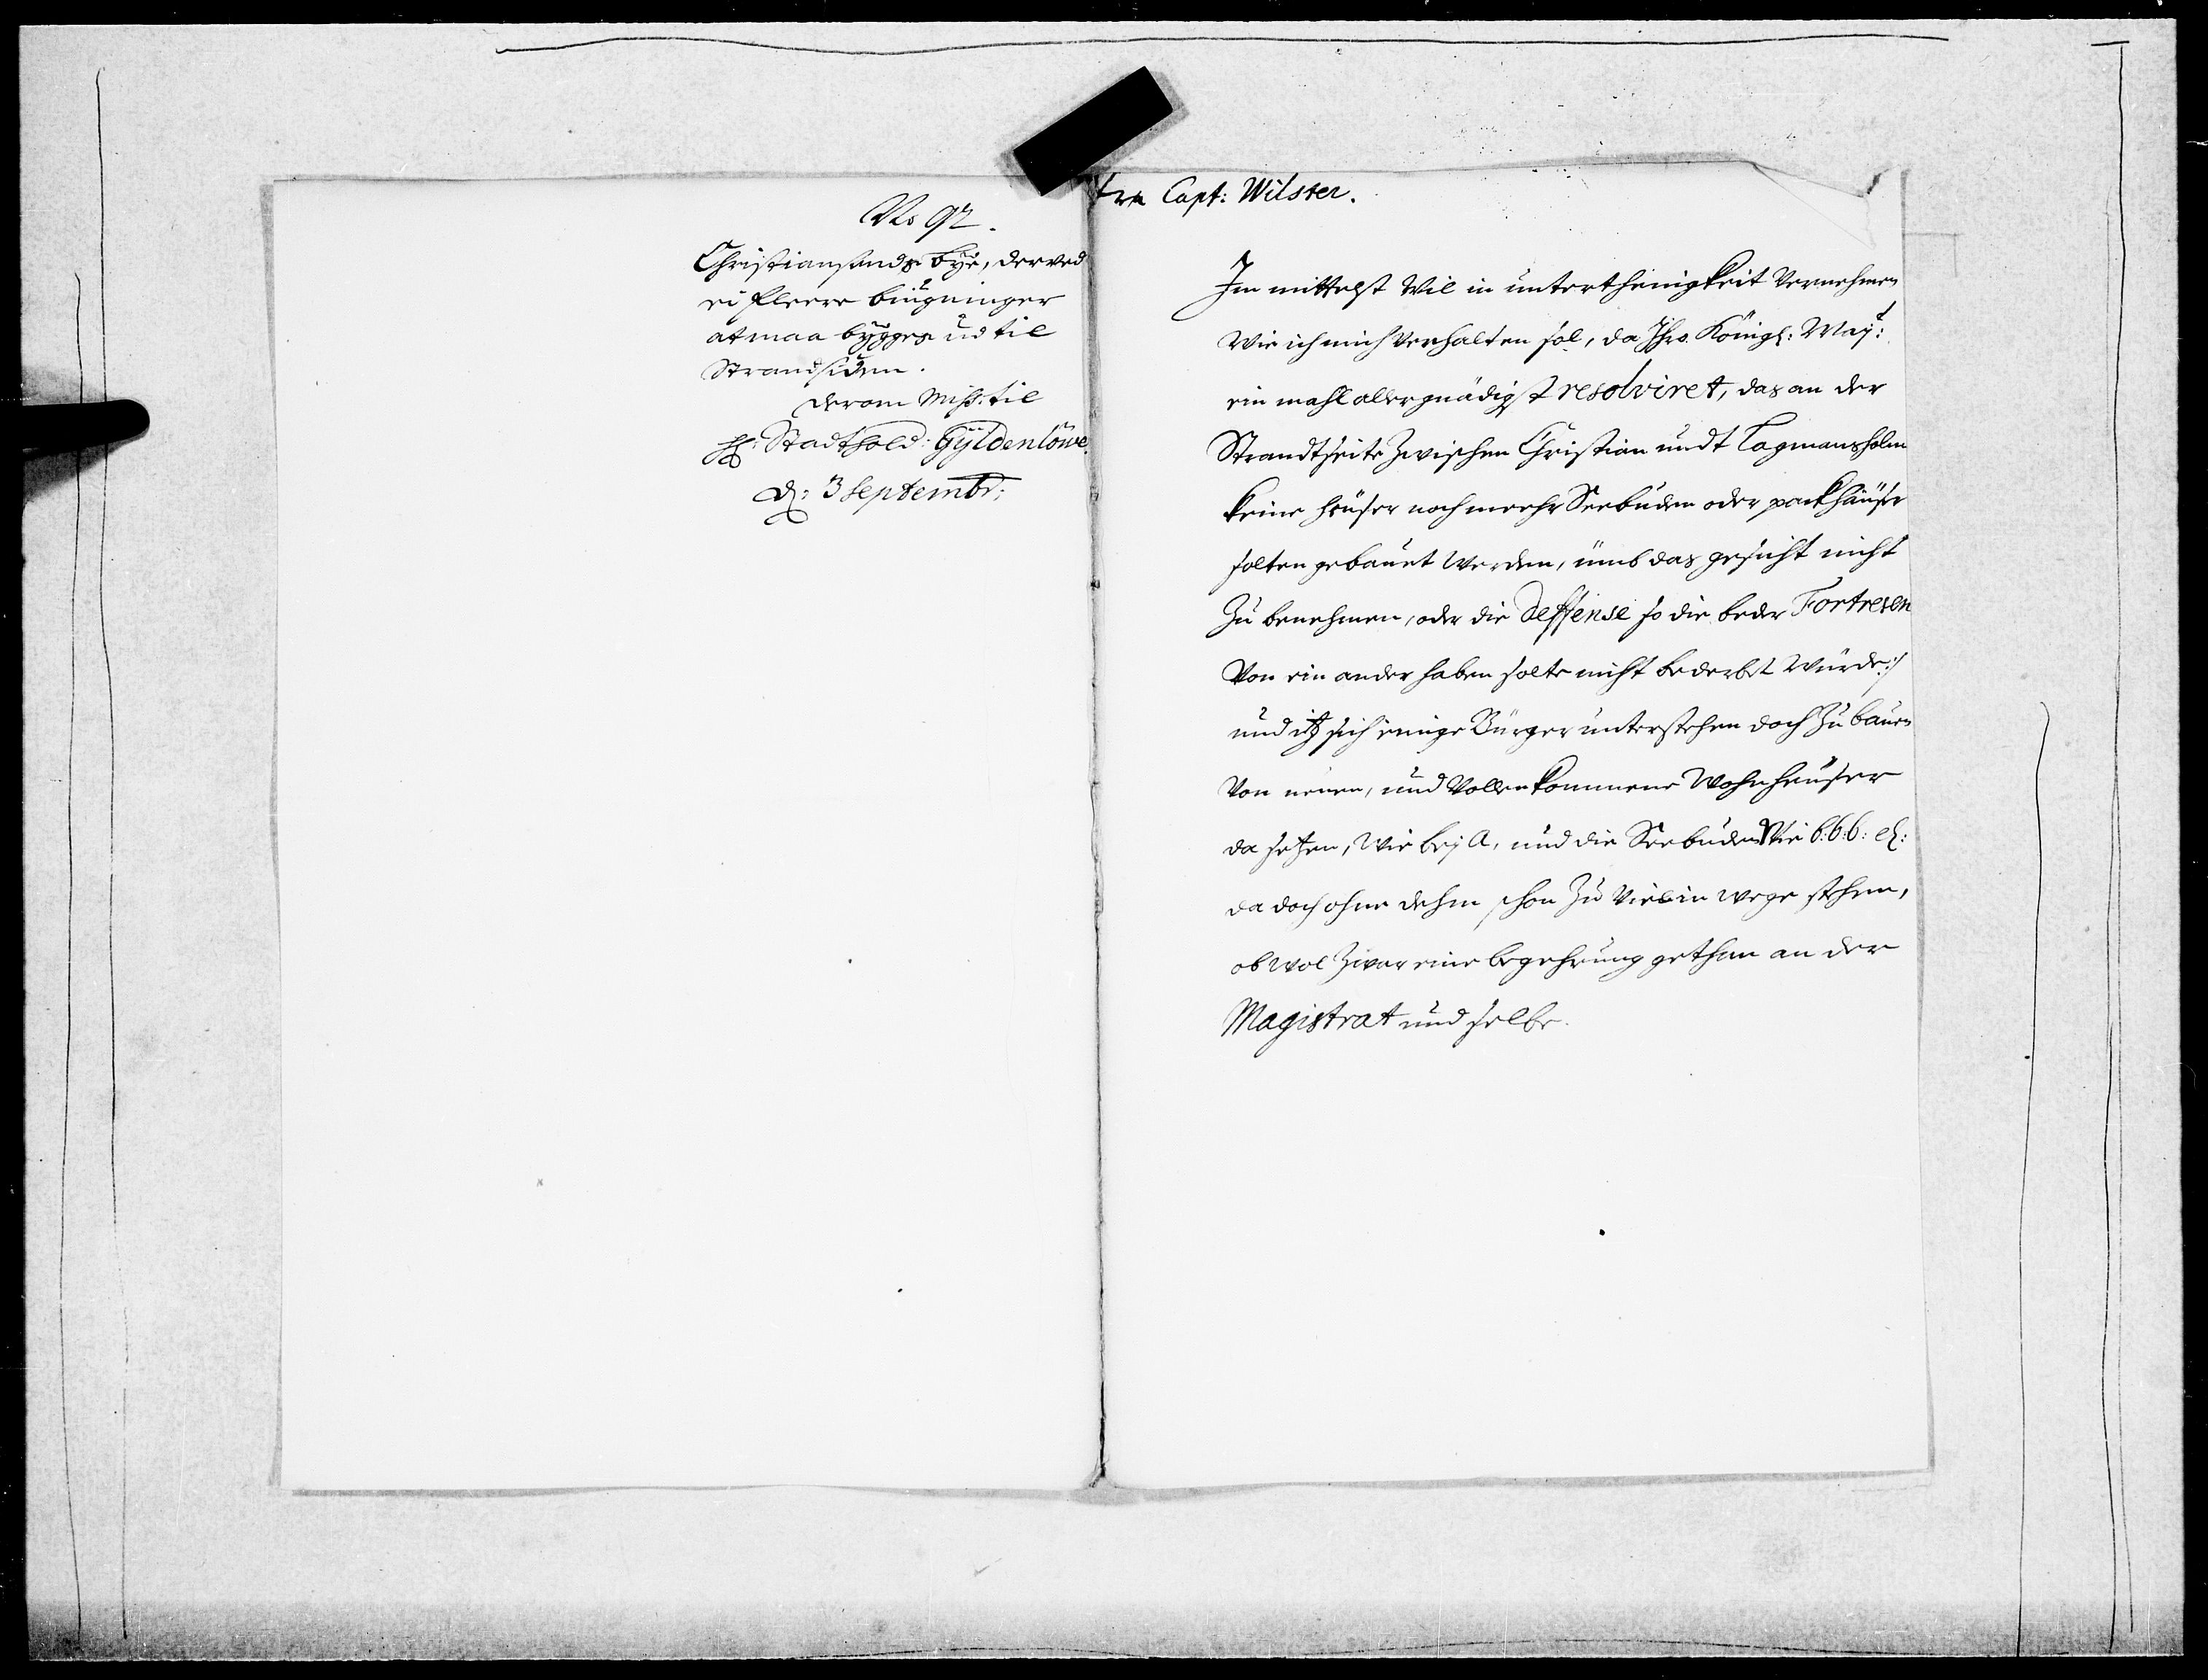 No 92.
Christiansands bye, derved
ei fleere bügninger
at maa bygges ud til
Strandsiden.
derom Miss: til
H: Stadthold: Gyldenlöwe.
d: 3 Septembr:
fra Capt: Wilster.
Im mittelst Wil in unterthenigkeit Vernehmen
Wie ich mich Verhalten sol, da Ihro Königl: Mayt:
ein mahl allergnädigst resolviret, das an der
Strandtseite zwischen Christian undt Lagmansholm
keine heüser noch meehr Seebuden oder packhäüser
solten gebauet Werden, umb das gesicht nicht
Zu benehmen, oder die deffense so die beder Fortresen
Von ein ander haben solte nicht bederbet Würde :/
und itz sich einige Bürger unterstehen doch Zu bauen
Von neuen, und Vollenkommene Wohnheüser
da setzen, Wie bej A, und die Seebuden Wie b: b: b: et:
da doch ohne dehm schon Zu Viel in wege stehen,
ob wol Zwar eine begehrung gethan an der
Magistrat und selbe.